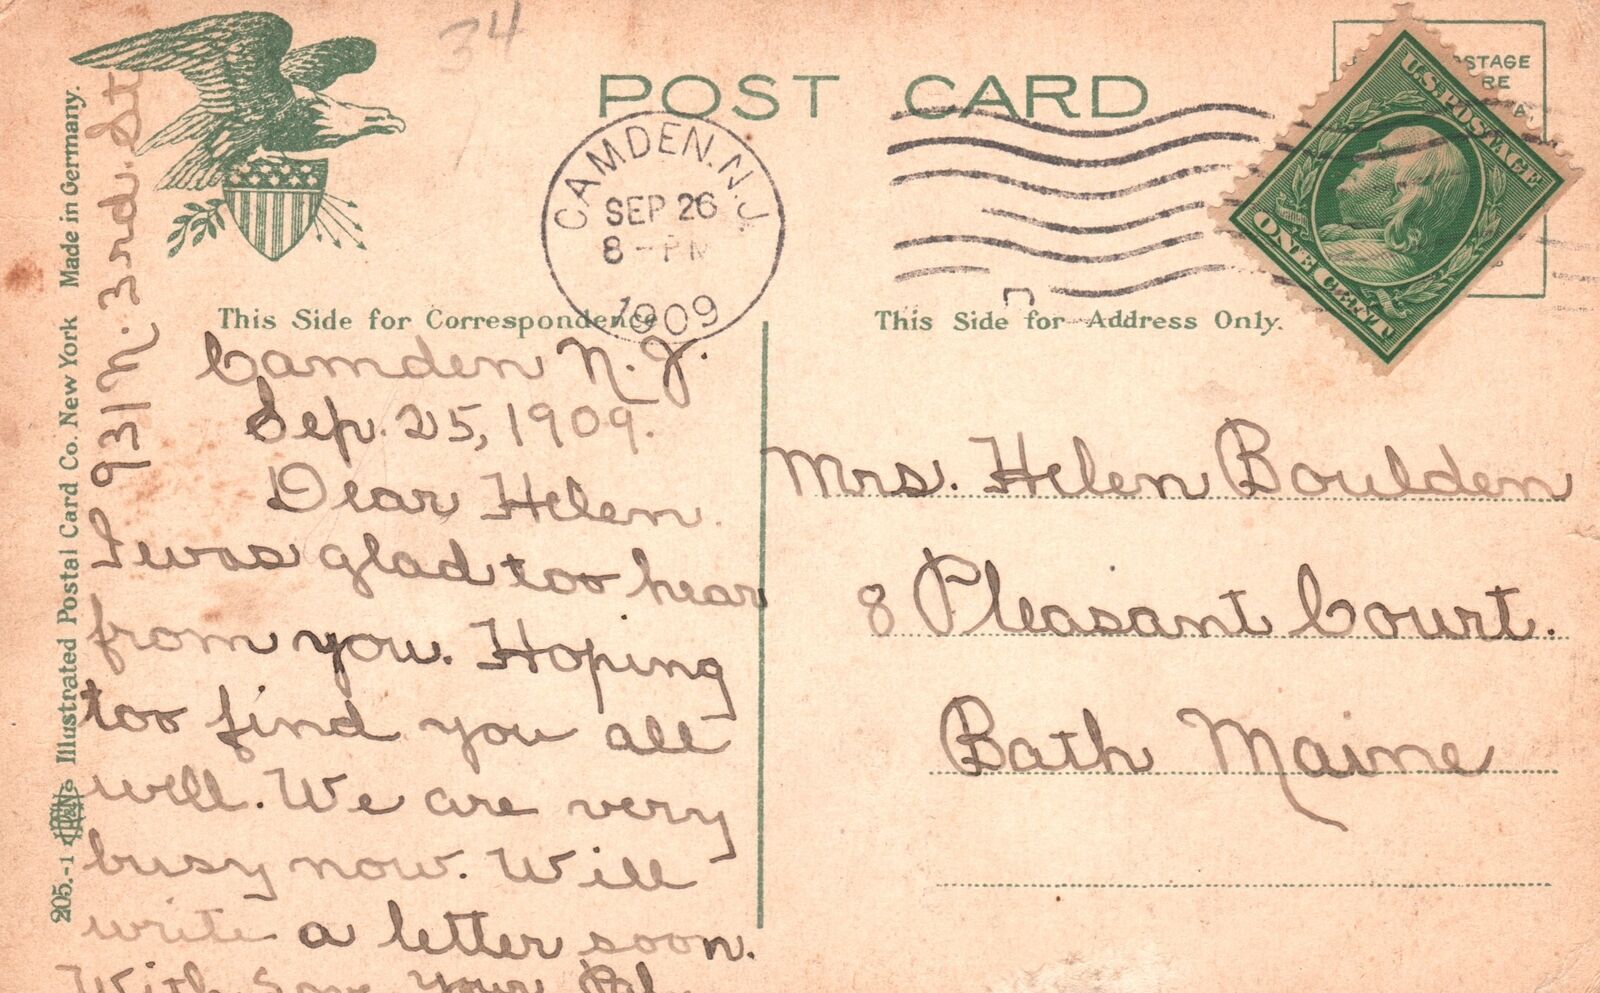 34
POST CARD
CAMDEN. N.J.
SEP 26
8 - PM
1909
U.S. POSTAGE
ONE CENT
This Side for Correspondence
This Side for Address Only.
931 N. 3rd. St
205.-1 Illustrated Postal Card Co. New York Made in Germany.
Camden N. J.
Sep. 25, 1909.
Dear Helen.
I was glad too hear
from you. Hoping
too find you all
well. We are very
busy now. Will
write a letter soon.
With Your
Mrs. Helen Boulden
8 Pleasant Court.
Bath Maine